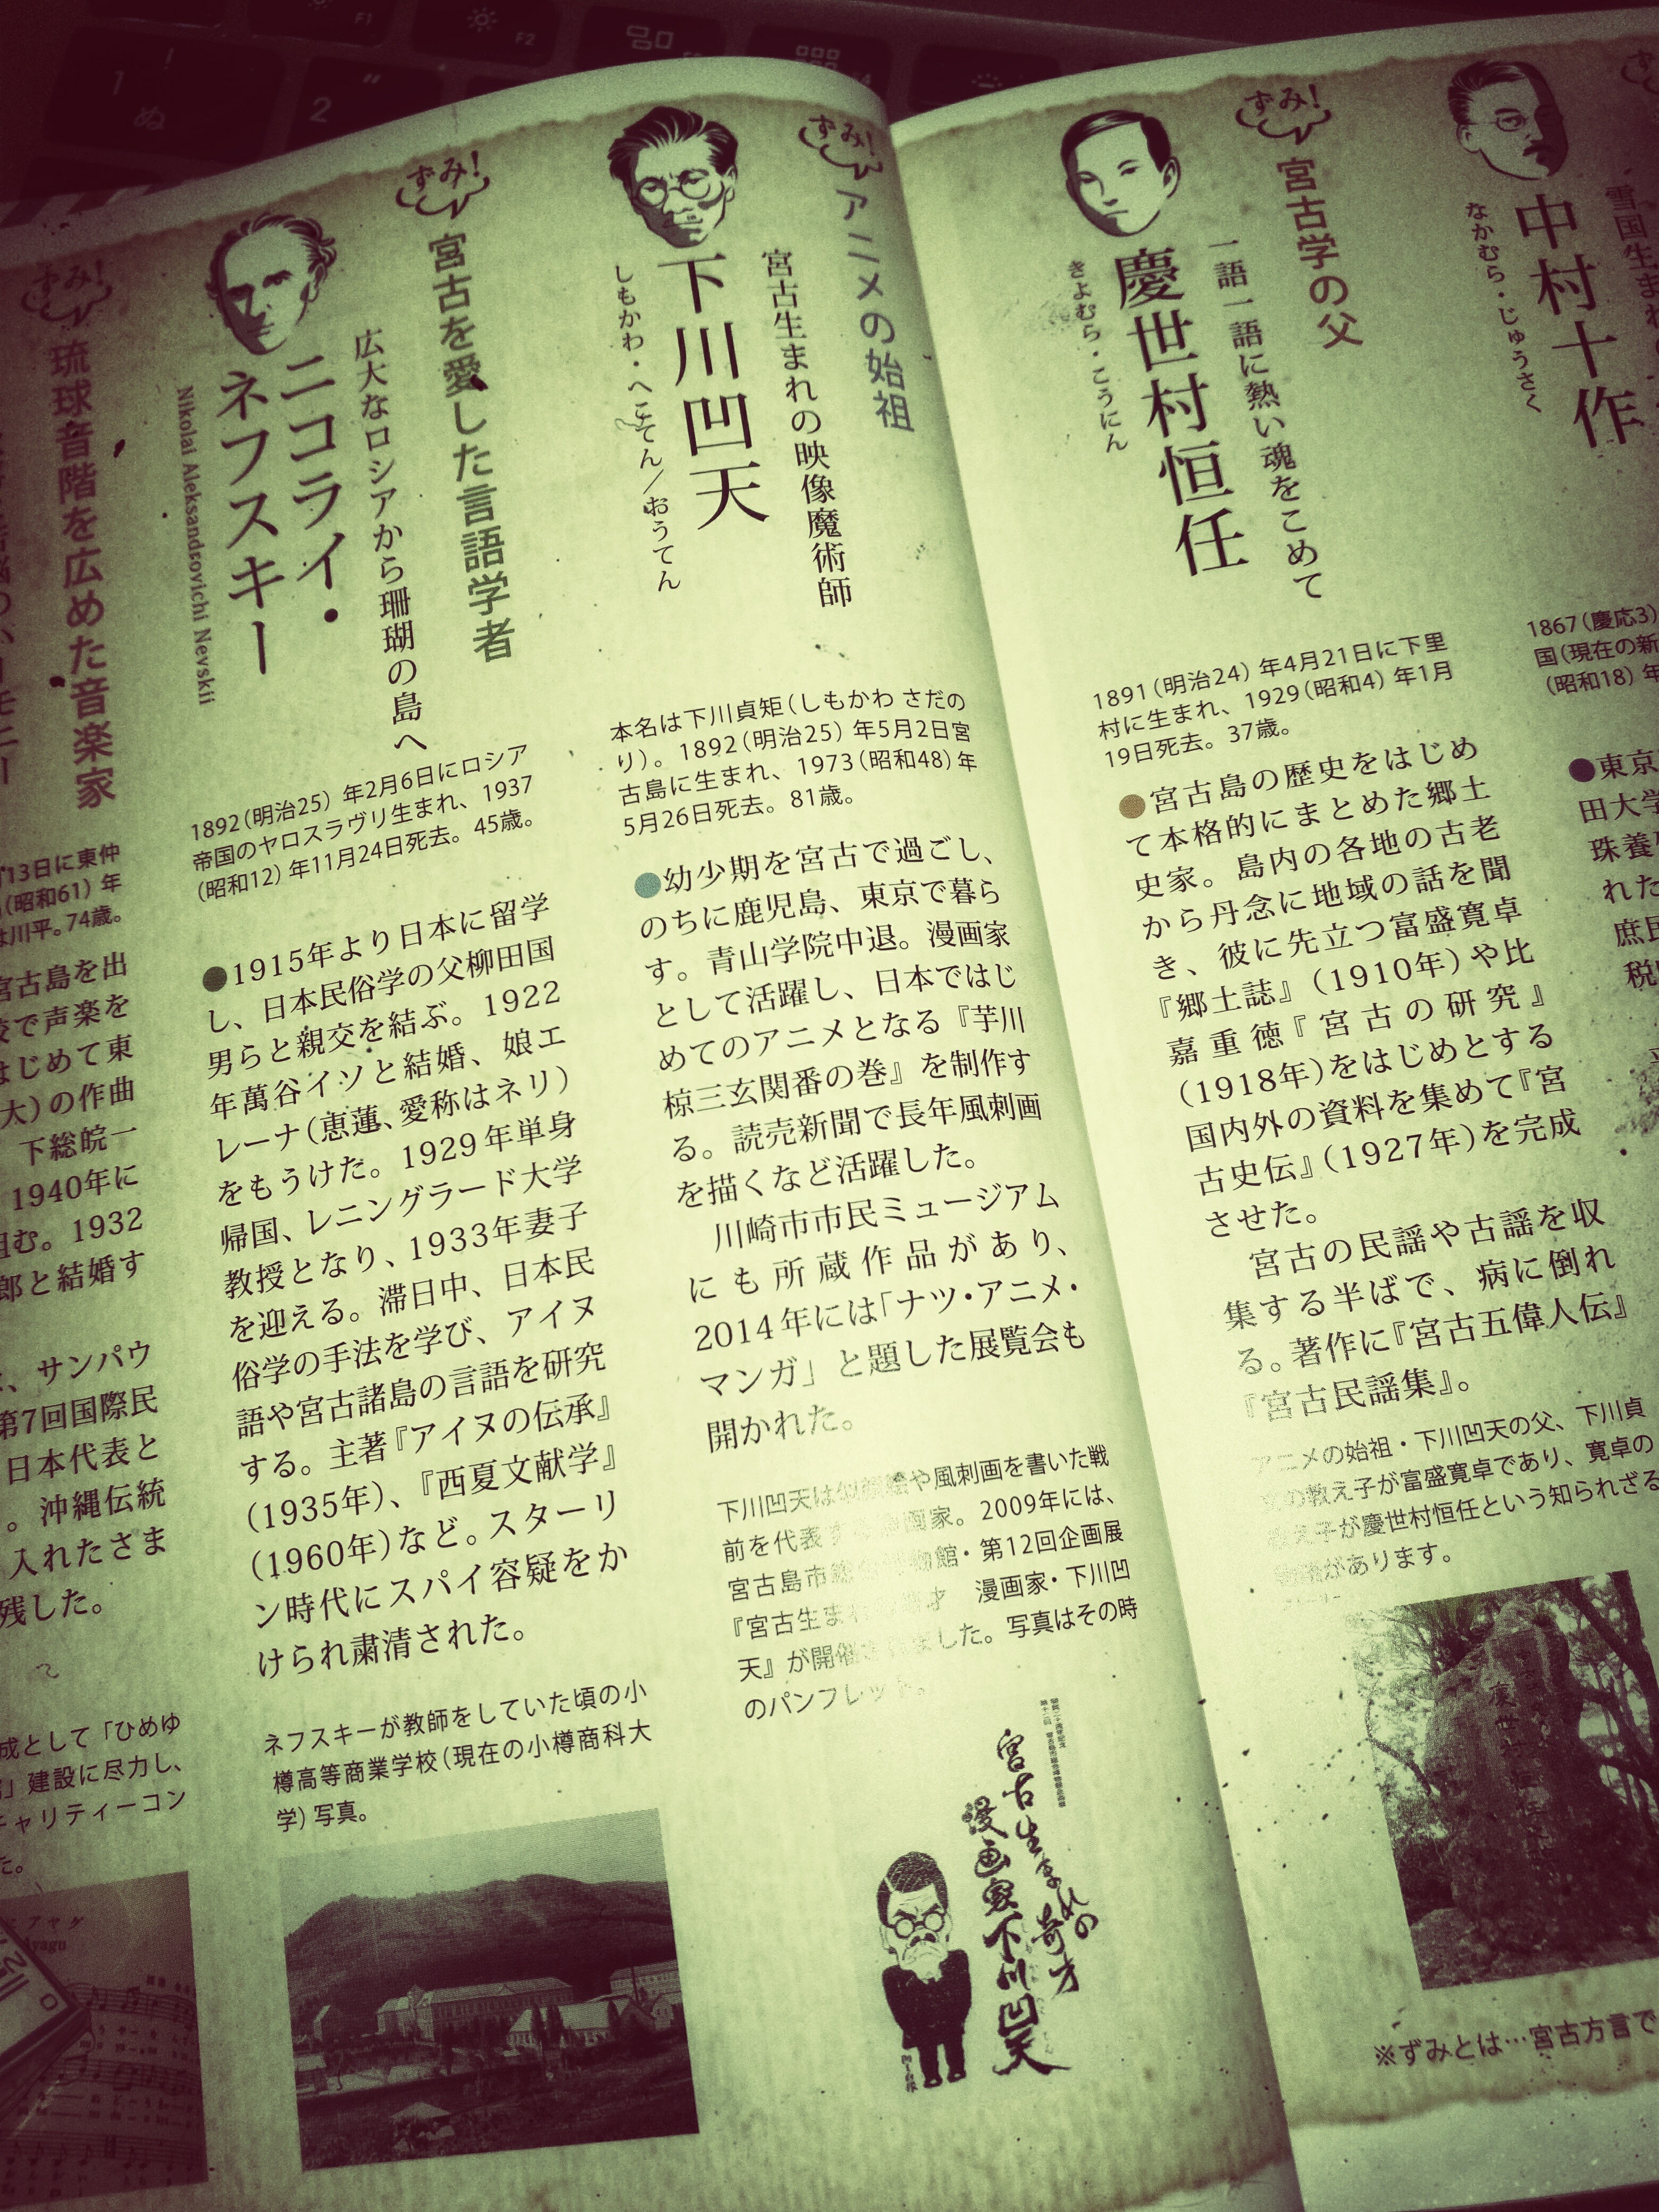 F1
F2
1
ぬ
2
ずみ!
中村十作
なかむら・じゅうさく
1867(慶応3)
国(現在の新
(昭和18)年
●東京
田大学
珠養
れた
庶民
ずみ!
宮古学の父
一語一語に熱い魂をこめて
慶世村恒任
きよむら・こうにん
1891(明治24)年4月21日に下里
村に生まれ、1929(昭和4)年1月
19日死去。37歳。
●宮古島の歴史をはじめ
て本格的にまとめた郷土
史家。島内の各地の古老
から丹念に地域の話を聞
き、彼に先立つ富盛寛卓
『郷土誌』(1910年)や比
嘉重徳『宮古の研究』
(1918年)をはじめとする
国内外の資料を集めて『宮
古史伝』(1927年)を完成
させた。
宮古の民謡や古謡を収
集する半ばで、病に倒れ
る。著作に『宮古五偉人伝』
『宮古民謡集』。
アニメの始祖・下川凹天の父、下川貞
の教え子が富盛寛卓であり、寛卓の
え子が慶世村恒任という知られざる
があります。
※ずみとは…宮古方言で
ずみ!
アニメの始祖
宮古生まれの映像魔術師
下川凹天
しもかわ・へこてん/おうてん
本名は下川貞矩(しもかわ さだの
り)。1892(明治25)年5月2日宮
古島に生まれ、1973(昭和48)年
5月26日死去。81歳。
●幼少期を宮古で過ごし、
のちに鹿児島、東京で暮ら
す。青山学院中退。漫画家
として活躍し、日本ではじ
めてのアニメとなる『芋川
椋三玄関番の巻』を制作す
る。読売新聞で長年風刺画
を描くなど活躍した。
川崎市市民ミュージアム
にも所蔵作品があり、
2014年には「ナツ・アニメ・
マンガ」と題した展覧会も
開かれた。
下川凹天は似顔絵や風刺画を書いた戦
前を代表す 画家。2009年には、
宮古島市総 物館・第12回企画展
『宮古生まれ 才 漫画家・下川凹
天』が開催されました。写真はその時
のパンフレット。
宮古生まれの奇才
漫画家下川凹天
ずみ!
宮古を愛した言語学者
広大なロシアから珊瑚の島へ
ニコライ・
ネフスキー
Nikolai Aleksandrovichi Nevskii
1892(明治25)年2月6日にロシア
帝国のヤロスラヴリ生まれ、1937
(昭和12)年11月24日死去。45歳。
●1915年より日本に留学
し、日本民俗学の父柳田国
男らと親交を結ぶ。1922
年萬谷イソと結婚、娘エ
レーナ(恵蓮、愛称はネリ)
をもうけた。1929年単身
帰国、レニングラード大学
教授となり、1933年妻子
を迎える。滞日中、日本民
俗学の手法を学び、アイヌ
語や宮古諸島の言語を研究
する。主著『アイヌの伝承』
(1935年)、『西夏文献学』
(1960年)など。スターリ
ン時代にスパイ容疑をか
けられ粛清された。
ネフスキーが教師をしていた頃の小
樽高等商業学校(現在の小樽商科大
学)写真。
ずみ!
琉球音階を広めた音楽家
月13日に東仲
(昭和61)年
は川平。74歳。
宮古島を出
校で声楽を
はじめて東
大)の作曲
下総皖一
1940年に
組む。1932
郎と結婚す
、サンパウ
第7回国際民
日本代表と
。沖縄伝統
入れたさま
残した。
成として「ひめゆ
」建設に尽力し、
チャリティーコン
た。
アヤグ
Ayagu